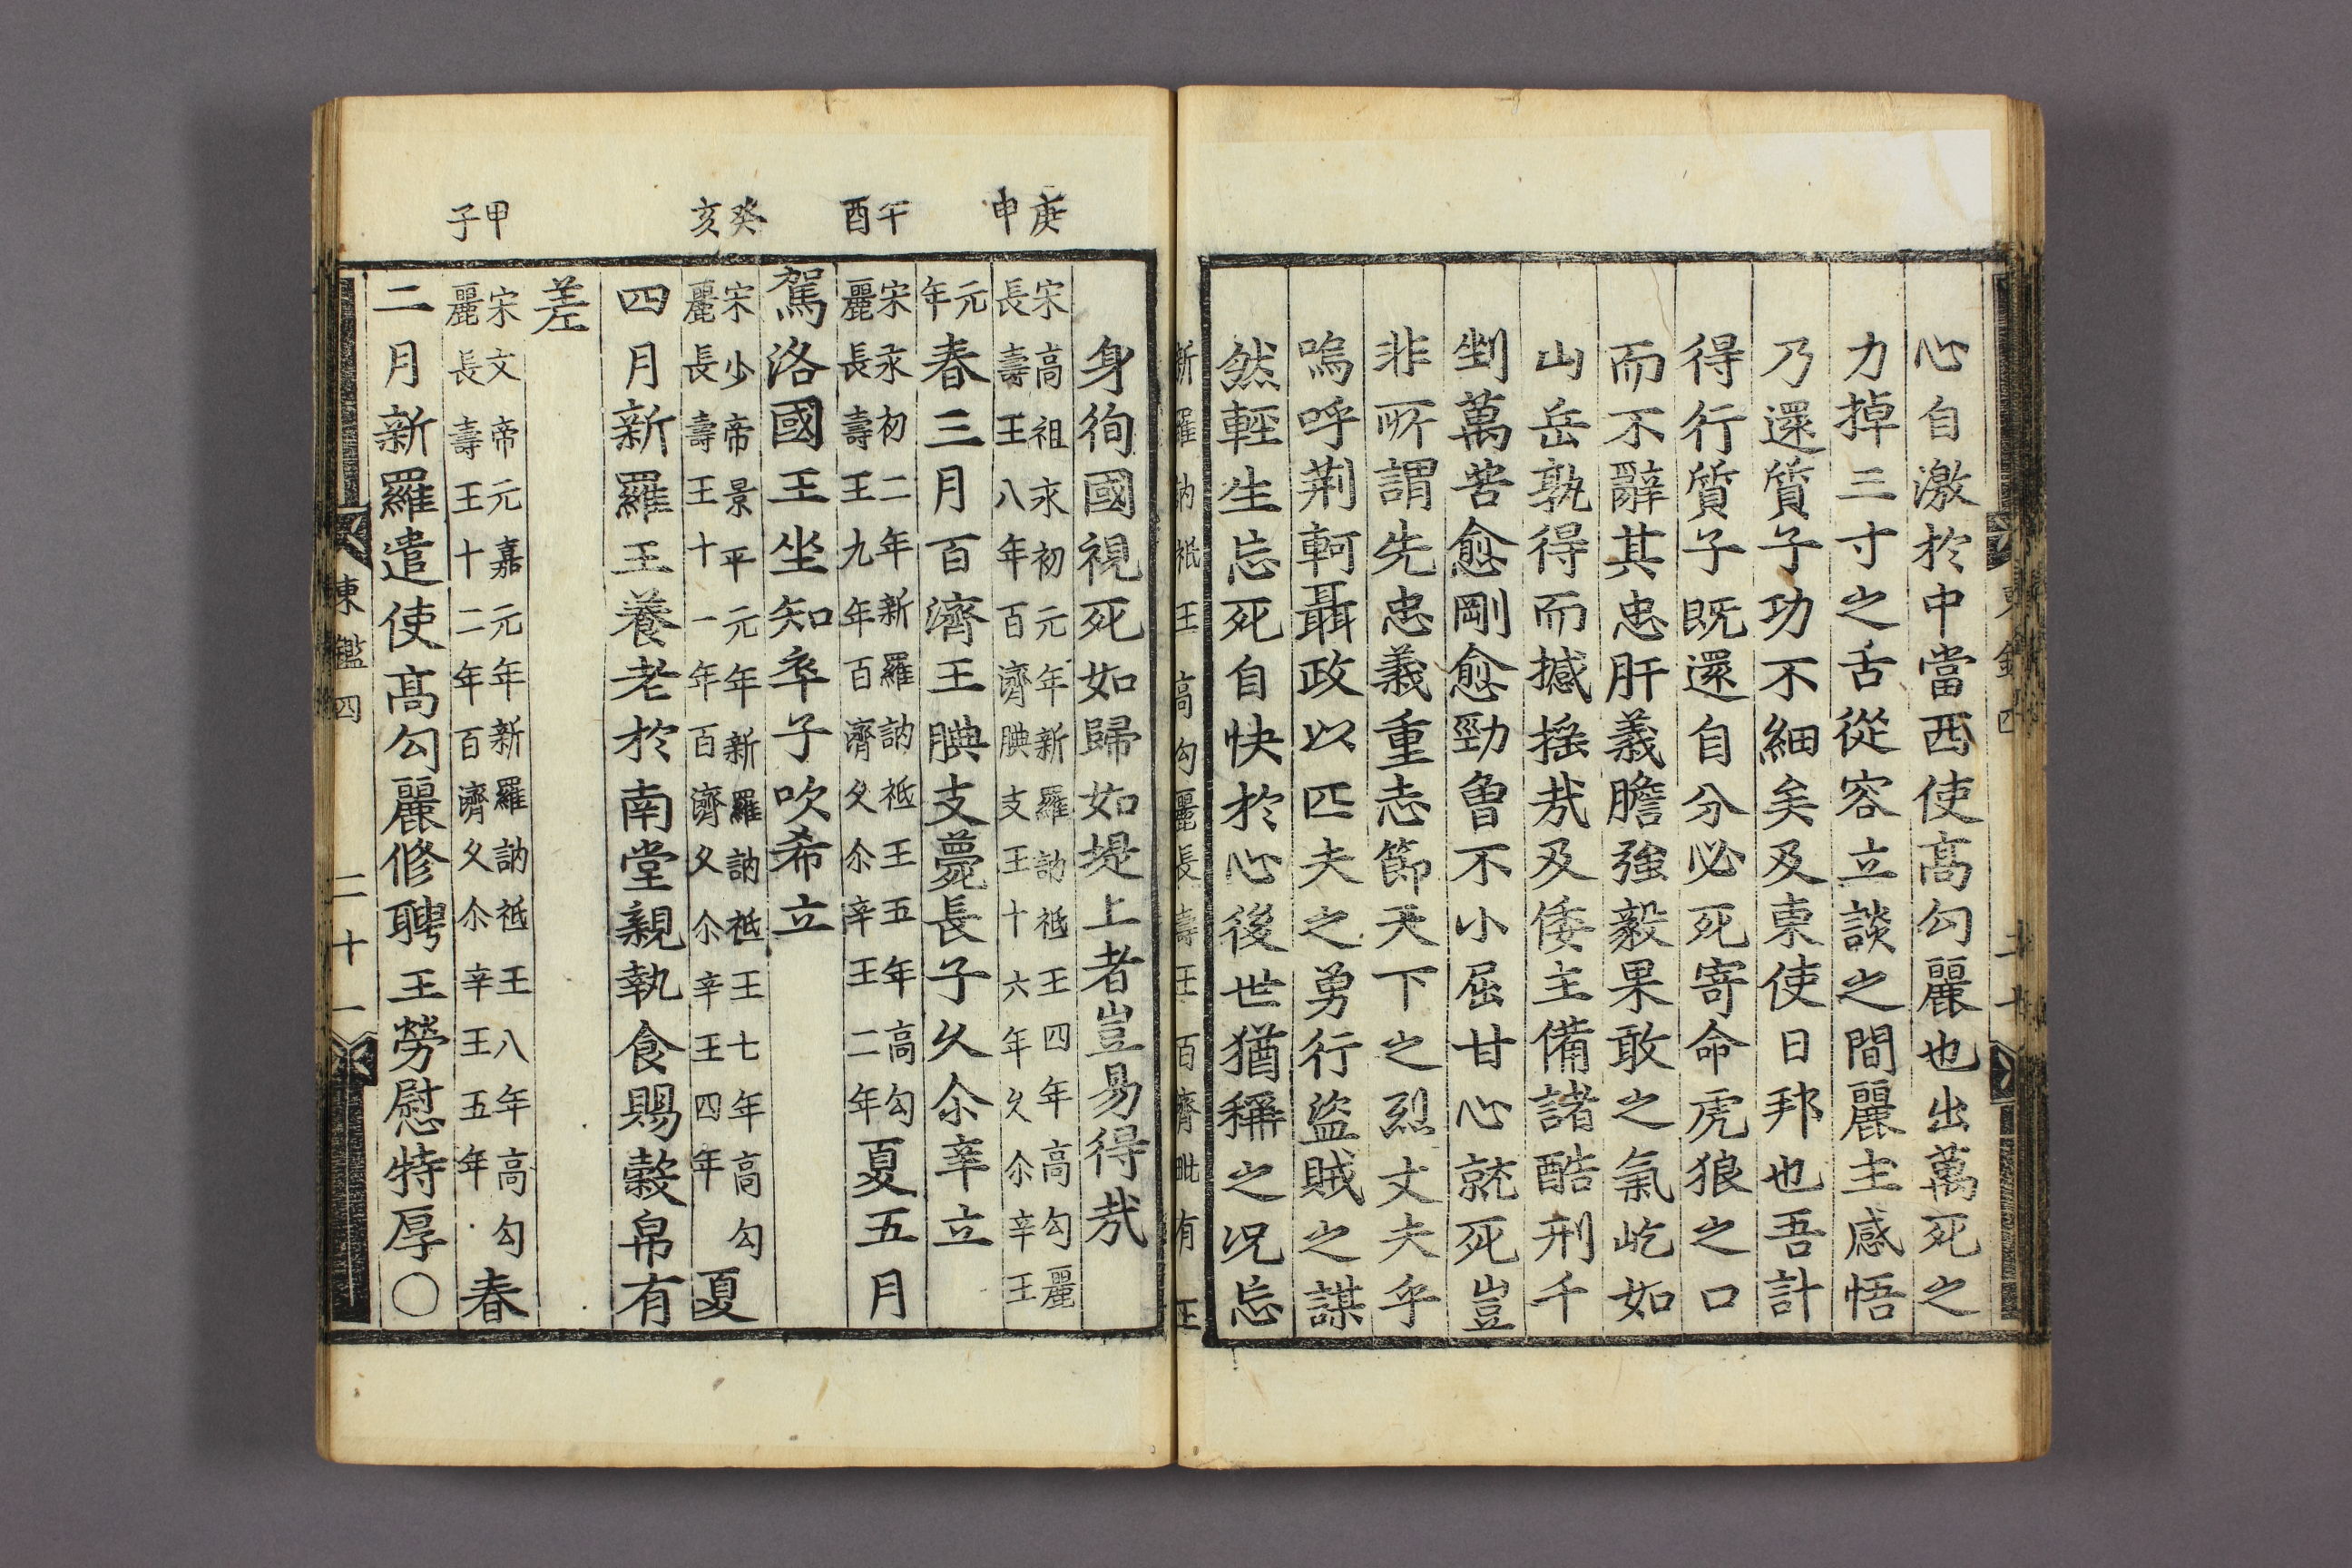 心自激於中當西使高勾麗也出萬死之
力掉三寸之舌從容立談之間麗主感悟
乃還質子功不細矣及東使日邦也吾計
得行質子既還自分必死寄命虎狼之口
而不辭其忠肝義膽強毅果敢之氣屹如
山岳孰得而撼搖㢤及倭主備諸酷刑千
剉萬苦愈剛愈勁曾不小屈甘心就死豈
非所謂先忠義重志節天下之烈丈夫乎
嗚呼荊軻聶政以匹夫之勇行盜賊之謀
然輕生忘死自快於心後世猶稱之況忘
新羅訥祗王高勾麗長壽王百濟毗有王
身徇國視死如歸如堤上者豈易得㢤
庚申
宋高祖永初元年新羅訥祗王四年高勾麗
長壽王八年百濟腆支王十六年久尒辛王
元年春三月百濟王腆支薨長子久尒辛立
辛酉
宋永初二年新羅訥祗王五年高勾
麗長壽王九年百濟久尒辛王二年夏五月
駕洛國王坐知卒子吹希立
癸亥
宋少帝景平元年新羅訥祗王七年高勾
麗長壽王十一年百濟久尒辛王四年夏
四月新羅王養老於南堂親執食賜穀帛有
差
甲子
宋文帝元嘉元年新羅訥祗王八年高勾
麗長壽王十二年百濟久尒辛王五年春
二月新羅遣使高勾麗修聘王勞慰特厚〇
東鑑四 二十一